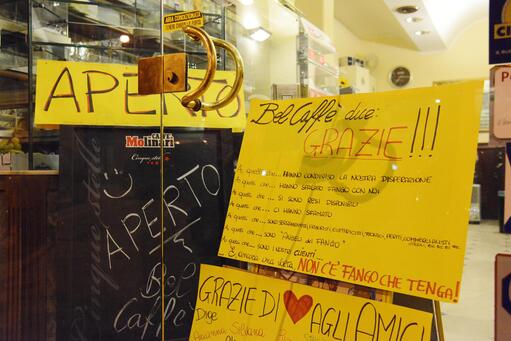 AREA CONDIZIONATA
APERTO
CAFFÈ
Molinari
Cinque stelle
APERTO
Bel
Caffè
Bel Caffè due:
GRAZIE!!!
A quelli che... HANNO CONDIVISO LA NOSTRA DISPERAZIONE
A quelli che... HANNO SPALATO FANGO CON NOI
A quelli che... SI SONO RESI DISPONIBILI
A quelli che... CI HANNO SFAMATO
A quelli che... SONO
A quelli che... SONO "ANGELI del FANGO"
A quelli che... SONO I NOSTRI CLIENTI
E ANCORA UNA VOLTA NON C'E' FANGO CHE TENGA!
GRAZIE DI ❤ AGLI AMICI
Dige
Silvana